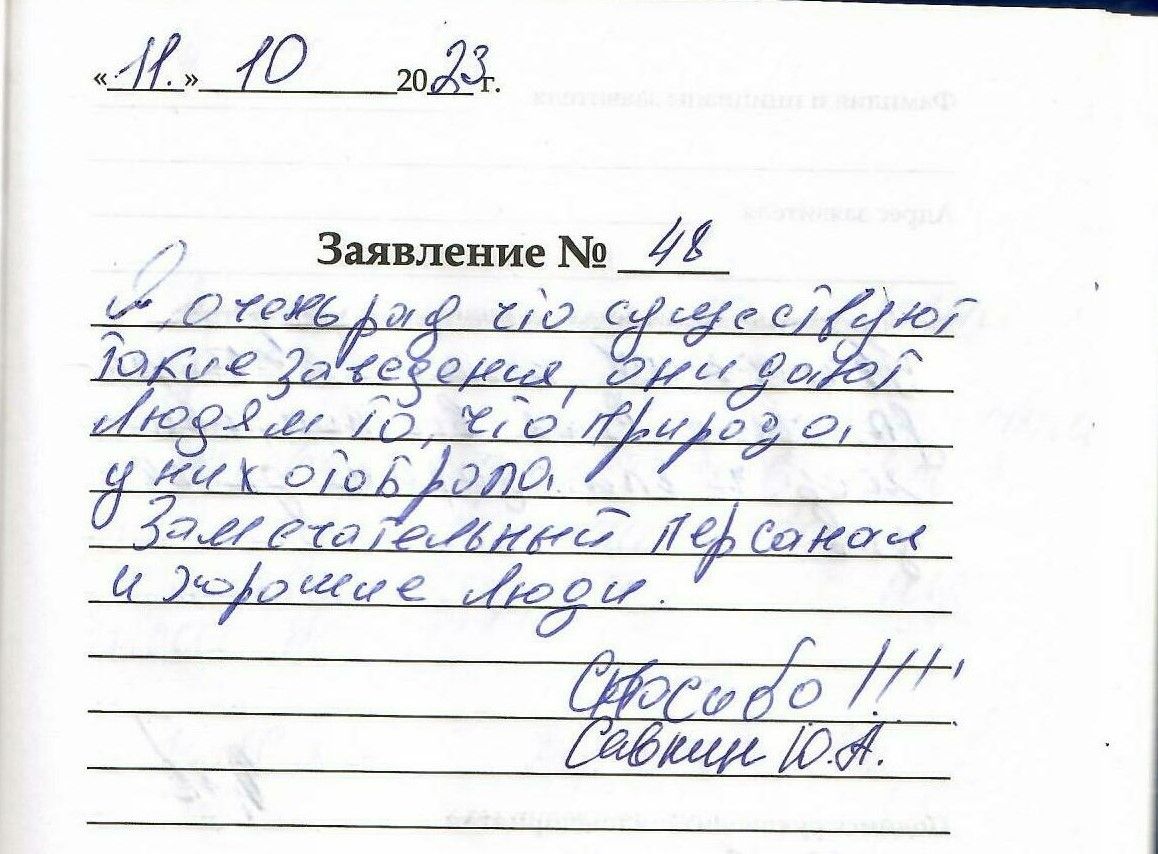 «11.» 10 2023 г.
Заявление № 48
Я, очень рад что существуют
такие заведения, они дают
людям то, что природа
у них отобрала.
Замечательный персанал
и хорошие люди.
Спасибо !!!!
Савкин Ю.А.